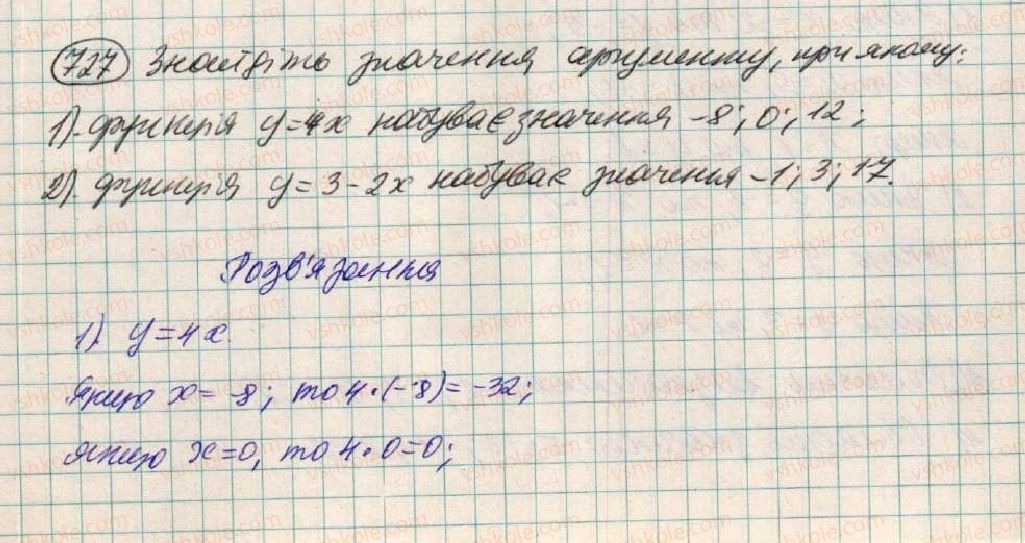 727 Знайдіть значення аргументу, при якому:
1). функція y=4x набуває значення -8; 0; 12;
2). функція y=3-2x набуває значення -1; 3; 17.
Розв'язання
1). y=4x.
Якщо x= -8; то 4·(-8)= -32;
якщо x=0, то 4·0=0;